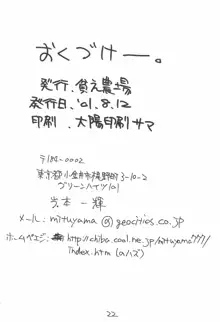 おくづけー。
発行.貧え農場
発行日.'01.8.12
印刷.太陽印刷サマ
〒184-0002
東京都小金井市梶野町3-10-2
グリーンハイツ101
一輝
メール: mituyama@geocities.co.jp
ホームページ: http://chiba.cool.ne.jp/mituyama777/
index.htm
22